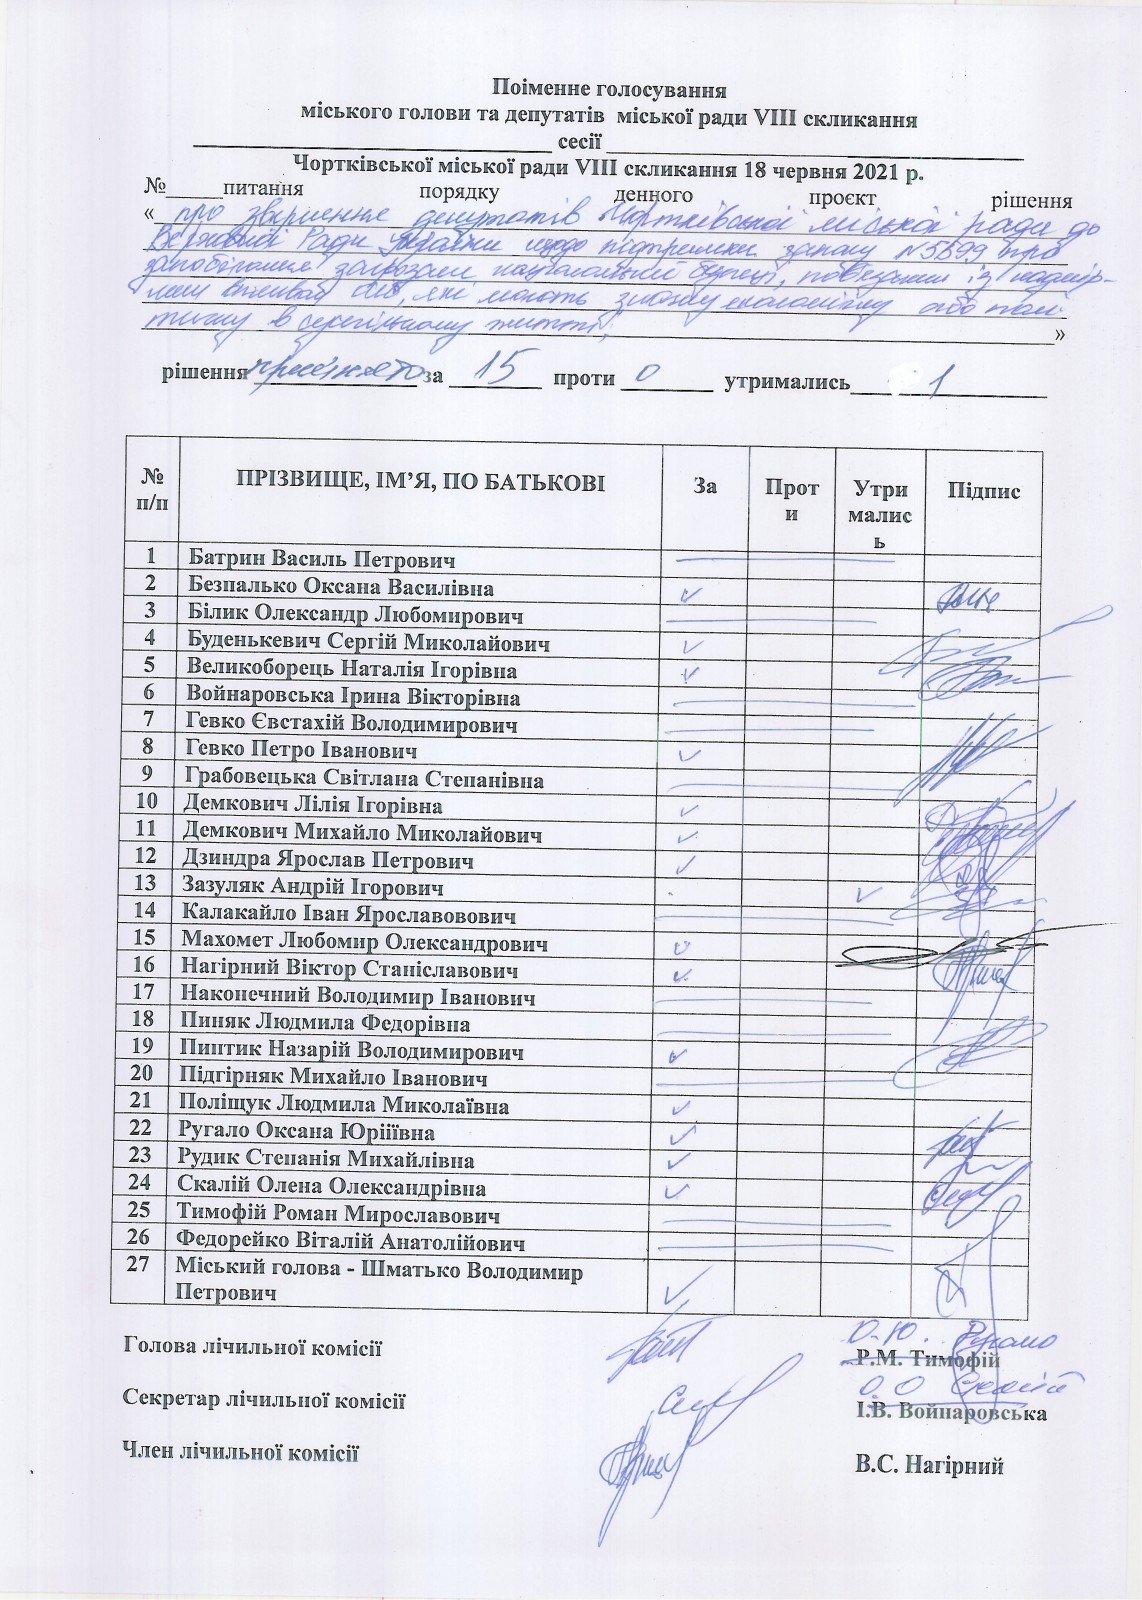 Поіменне голосування
міського голови та депутатів міської ради VIII скликання
сесії
Чортківської міської ради VIII скликання 18 червня 2021 р.
№ питання порядку денного проєкт рішення
« про звернення депутатів Чортківської міської ради до
Верховної Ради України щодо підтримки закону №5599 про
запобігання загрозам національній безпеці, пов'язаним із надмір-
ним впливом осіб, які мають значну економічну або полі-
тичну в суспільному житті; »
рішення прийнято за 15 проти 0 утримались 1
№ п/п ПРІЗВИЩЕ, ІМ’Я, ПО БАТЬКОВІ За Проти Утримались Підпис
1 Батрин Василь Петрович
2 Безпалько Оксана Василівна
3 Білик Олександр Любомирович
4 Буденькевич Сергій Миколайович
5 Великоборець Наталія Ігорівна
6 Войнаровська Ірина Вікторівна
7 Гевко Євстахій Володимирович
8 Гевко Петро Іванович
9 Грабовецька Світлана Степанівна
10 Демкович Лілія Ігорівна
11 Демкович Михайло Миколайович
12 Дзиндра Ярослав Петрович
13 Зазуляк Андрій Ігорович
14 Калакайло Іван Ярославовович
15 Махомет Любомир Олександрович
16 Нагірний Віктор Станіславович
17 Наконечний Володимир Іванович
18 Пиняк Людмила Федорівна
19 Пиптик Назарій Володимирович
20 Підгірняк Михайло Іванович
21 Поліщук Людмила Миколаївна
22 Ругало Оксана Юріїївна
23 Рудик Степанія Михайлівна
24 Скалій Олена Олександрівна
25 Тимофій Роман Мирославович
26 Федорейко Віталій Анатолійович
27 Міський голова - Шматько Володимир
Петрович
О.Ю. Ругало
Голова лічильної комісії Р.М. Тимофій
О.О Скалій
Секретар лічильної комісії І.В. Войнаровська
Член лічильної комісії В.С. Нагірний